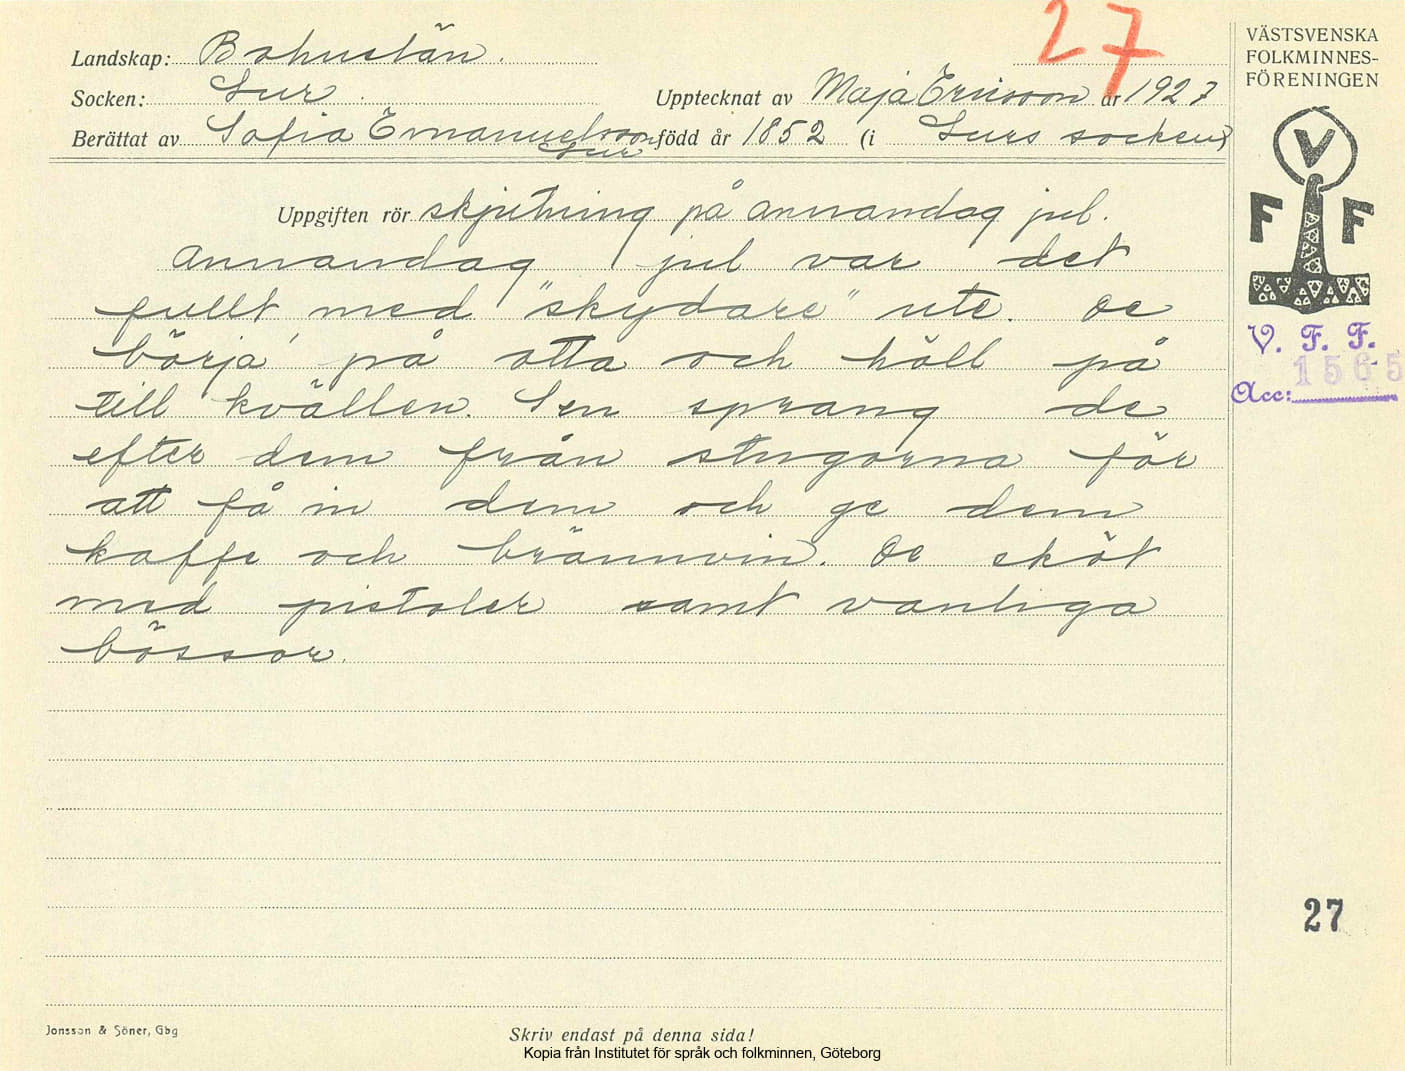 27
Landskap: Bohuslän.
Socken: Lur. Upptecknat av Maja Ericsson år 1927
Berättat av Sofia Emanuelsson född år 1852 (i Lurs socken)
Lur
Uppgiften rör skjutning på annandag jul.
Annandag jul var det
fullt med "skydare" ute. De
börja' på otta och höll på
till kvällen. Sen sprang de
efter dem från stugorna för
att få in dem och ge dem
kaffe och brännvin. De sköt
med pistoler samt vanliga
bössor.
VÄSTSVENSKA
FOLKMINNES-
FÖRENINGEN
V
F F
V. F. F.
1565
Acc:
27
Jonsson & Söner, Gbg
Skriv endast på denna sida!
Kopia från Institutet för språk och folkminnen, Göteborg